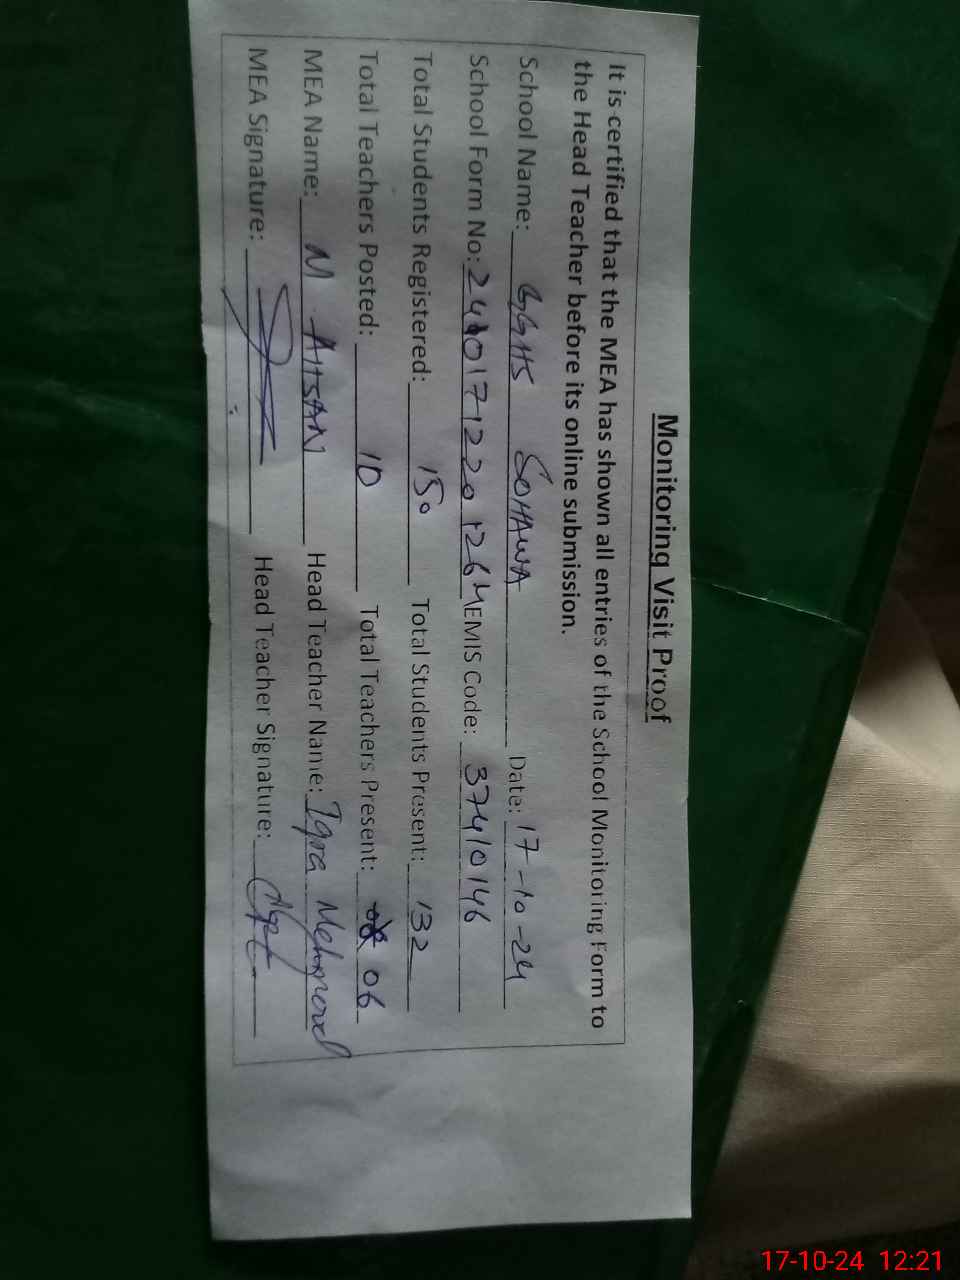 Monitoring Visit Proof
It is certified that the MEA has shown all entries of the School Monitoring Form to
the Head Teacher before its online submission.
School Name: GGHS SOHAWA Date: 17-10-24
School Form No: EMIS Code: 37410146
Total Students Registered: 150 Total Students Present: 132
Total Teachers Posted: 10 Total Teachers Present: 06
MEA Name: M. AHSAN Head Teacher Name: Iqra
MEA Signature: Head Teacher Signature:
17-10-24 12:21